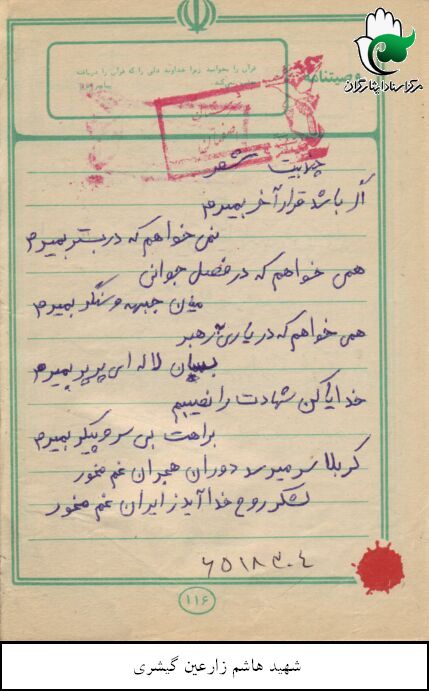 مرکز اسناد ایثارگران
وصیتنامه
قرآن را بخوانید زیرا خداوند دلی را که قرآن را دریافت
چند بیت شعر
اگر باشد قرار آخر بمیرم
نمی خواهم که در بستر بمیرم
همی خواهم که در فصل جوانی
میان جبهه و سنگر بمیرم
همی خواهم که در یاری رهبر
بسان لاله ای پرپر بمیرم
خدایا کن شهادت را نصیبم
براهت بی سر و پیکر بمیرم
کربلا سر میرسد دوران هجران غم مخور
لشکر روح خدا آید ز ایران غم مخور
۱۱۶
شهید هاشم زارعین گیشری